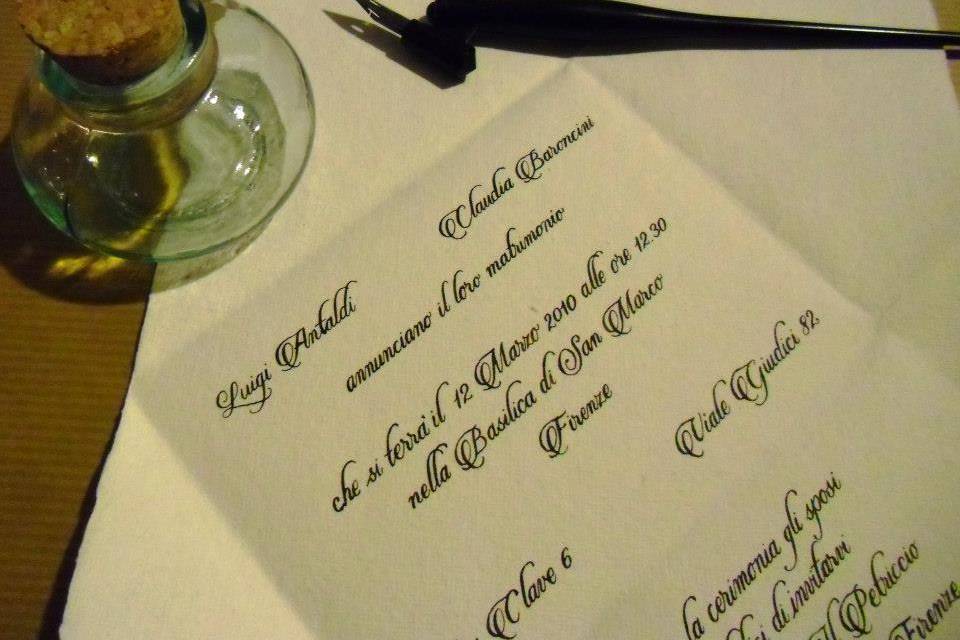 Luigi Antaldi Claudia Baroncini
annunciano il loro matrimonio
che si terrà il 12 Marzo 2010 alle ore 12.30
nella Basilica di San Marco
Firenze
Clave 6 Viale Giudici 82
la cerimonia gli sposi
di invitarvi
Il Petriccio
Firenze